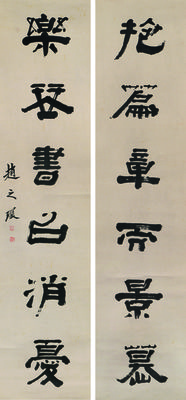 抱篇章而景慕
樂琴書以消憂
趙之琛